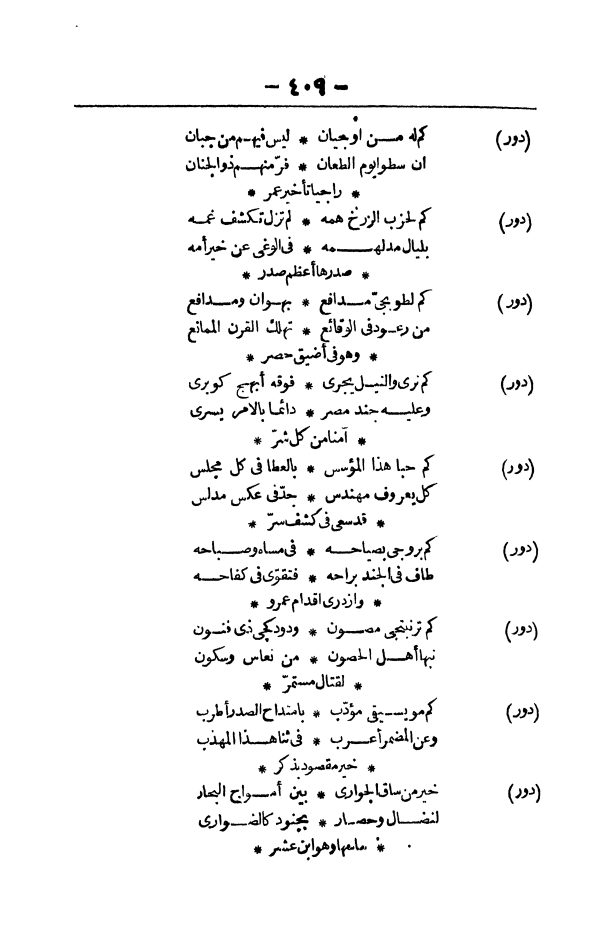 - ٤٠٩ -
(دور) كم له من اوجيان * ليس فيهم من جبان
ان سطوا يوم الطعان * فرّ منهم ذو الجنان
* راجيا تأخير عمر *
(دور) كم لحزب الزرخ همه * لم تزل تكشف غمه
بليال مدلهمه * فى الوغى عن خير أمه
* صدرها أعظم صدر *
(دور) كم لطوبجىّ مدافع * بهوان ومدافع
من رعود فى الوقائع * تهلك القرن الممانع
* وهو فى أضيق حصر *
(دور) كم نرى والنيل يجرى * فوقه أبهج كوبرى
وعليه جند مصر * دائما بالامر يسرى
* آمنا من كل شرّ *
(دور) كم حبا هذا المؤسس * بالعطا فى كل مجلس
كل يعروف مهندس * جدّ فى عكس مدلس
* قد سعى فى كشف سرّ *
(دور) كم بروجى بصياحه * فى مساه وصباحه
طاف فى الجند براحه * فتقوّى فى كفاحه
* وازدرى اقدام عمرو *
(دور) كم ترنبتجى مصون * ودودكجى ذى فنون
نبها أهل الحصون * من نعاس وسكون
* لقتال مستمرّ *
(دور) كم موسيقى مؤدّب * بامتداح الصدر أطرب
وعن المضمر أعرب * فى ثنا هذا المهذب
* خير مقصود بذكر *
(دور) خير من ساق الجوارى * بين أمواج البحار
لنضال وحصار * بجنود كالضوارى
* وهو ابن عشر *